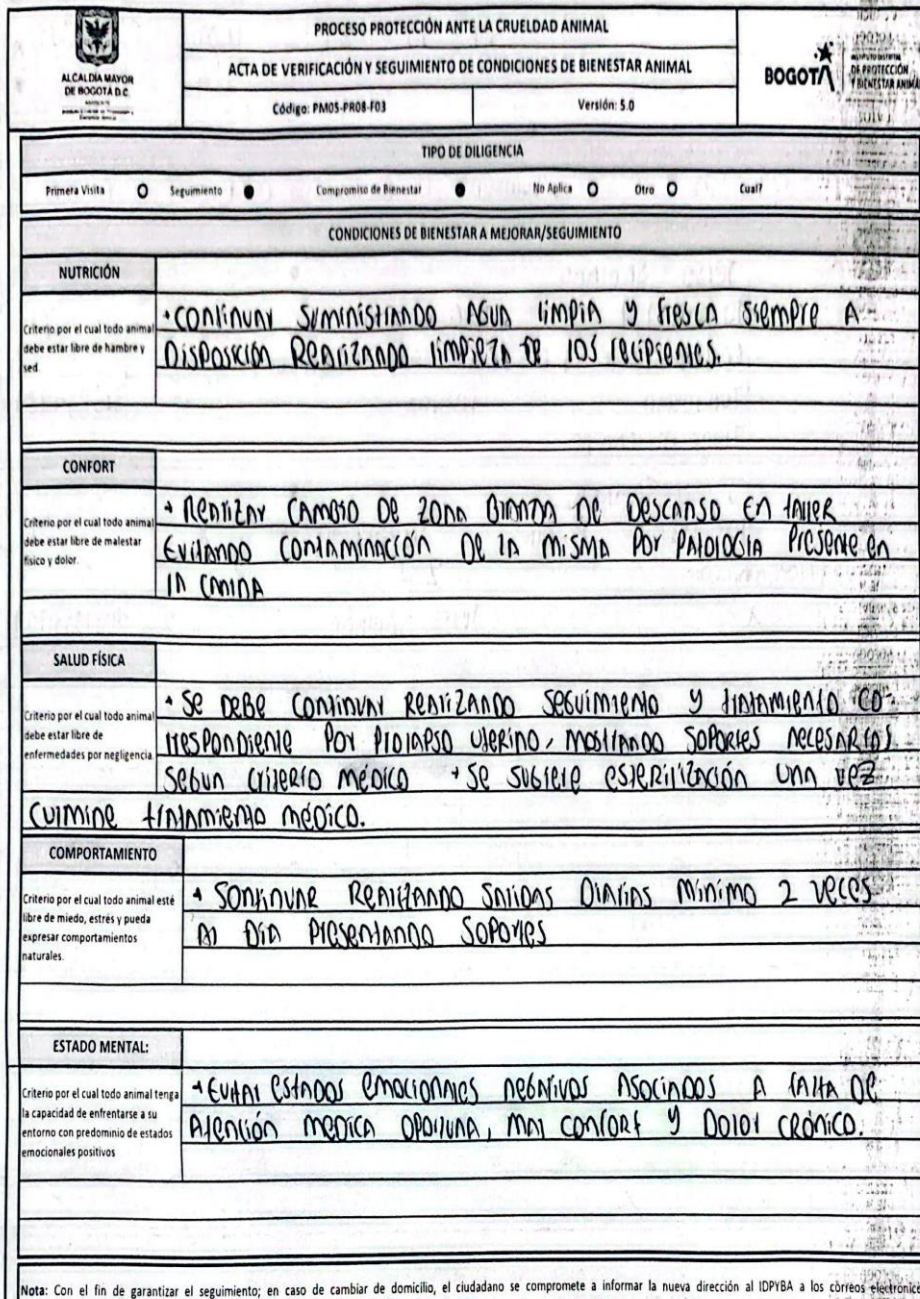 PROCESO PROTECCIÓN ANTE LA CRUELDAD ANIMAL
ACTA DE VERIFICACIÓN Y SEGUIMIENTO DE CONDICIONES DE BIENESTAR ANIMAL
Código: PM05-PR08-F03
Versión: 5.0
ALCALDÍA MAYOR
DE BOGOTÁ D.C.
BOGOTÁ
INSTITUTO DISTRITAL
DE PROTECCIÓN
Y BIENESTAR ANIMAL
TIPO DE DILIGENCIA
Primera Visita Seguimiento Compromiso de Bienestar No Aplica Otro Cual?
CONDICIONES DE BIENESTAR A MEJORAR/SEGUIMIENTO
NUTRICIÓN
Criterio por el cual todo animal
debe estar libre de hambre y
sed.
• Continuar suministrando agua limpia y fresca siempre a
disposición realizando limpieza de los recipientes.
CONFORT
Criterio por el cual todo animal
debe estar libre de malestar
físico y dolor.
• Realizar cambio de zona blanda de descanso en taller
evitando contaminación de la misma por patologia presente en
la canina
SALUD FÍSICA
Criterio por el cual todo animal
debe estar libre de
enfermedades por negligencia.
• Se debe continuar realizando seguimiento y tratamiento co-
rrespondiente por prolapso uterino, mostrando soportes necesarios
segun criterio médico • Se sugiere esterilización una vez
culmine tratamiento médico.
COMPORTAMIENTO
Criterio por el cual todo animal esté
libre de miedo, estrés y pueda
expresar comportamientos
naturales.
• Sontinuar realizando salidas diarias minimo 2 veces
al dia presentando soportes
ESTADO MENTAL:
Criterio por el cual todo animal tenga
la capacidad de enfrentarse a su
entorno con predominio de estados
emocionales positivos
• Evitar estados emocionales negativos asociados a falta de
atención medica oportuna, mal confort y dolor crónico.
Nota: Con el fin de garantizar el seguimiento; en caso de cambiar de domicilio, el ciudadano se compromete a informar la nueva dirección al IDPYBA a los correos electrónic